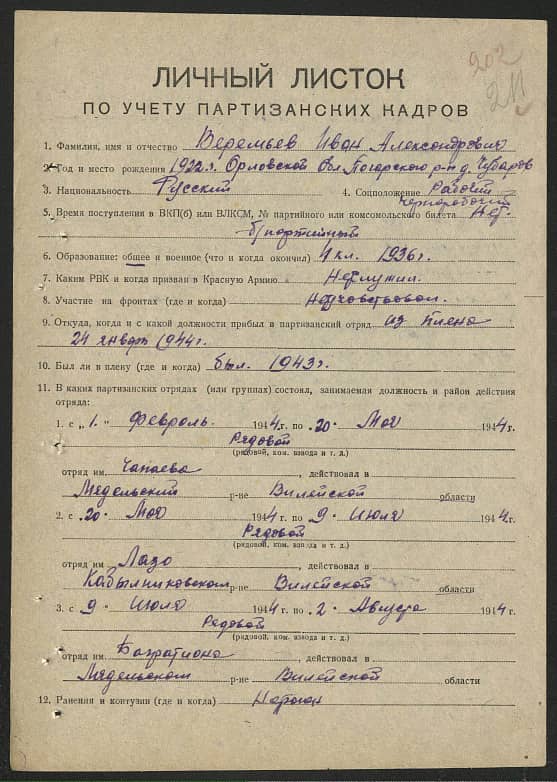 202
211
ЛИЧНЫЙ ЛИСТОК
ПО УЧЕТУ ПАРТИЗАНСКИХ КАДРОВ
1. Фамилия, имя и отчество Веремьев Иван Александрович
2. Год и место рождения 1922 г. Орловской обл. Погарского р-н д. Чубаров
3. Национальность Русский 4. Соцположение Рабочий
чернорабочий
5. Время поступления в ВКП(б) или ВЛКСМ, № партийного или комсомольского билета Нет.
б/партийный
6. Образование: общее и военное (что и когда окончил) 4 кл. 1936 г.
7. Каким РВК и когда призван в Красную Армию Неслужил.
8. Участие на фронтах (где и когда) Неучовствовал.
9. Откуда, когда и с какой должности прибыл в партизанский отряд из плена
24 январь 1944 г.
10. Был ли в плену (где и когда) был. 1943 г.
11. В каких партизанских отрядах (или группах) состоял, занимаемая должность и район действия
отряда:
1. с „1.“ Февроль 1944 г. по „20.“ Мой 1944 г.
Рядовой
(рядовой, ком. взвода и т. д.)
отряд им. Чапаева, действовал в
Мядельский р-не Вилейской области
2. с „20.“ Мой 1944 г. по „9.“ Июля 1944 г.
Рядовой
(рядовой, ком. взвода и т. д.)
отряд им. Лазо, действовал в
Кобыльниковском р-не Вилейской области
3. с „9“ Июля 1944 г. по „2.“ Августа 1944 г.
Рядовой
(рядовой, ком. взвода и т. д.)
отряд им. Багратиона, действовал в
Мядельском р-не Вилейской области
12. Ранения и контузии (где и когда)